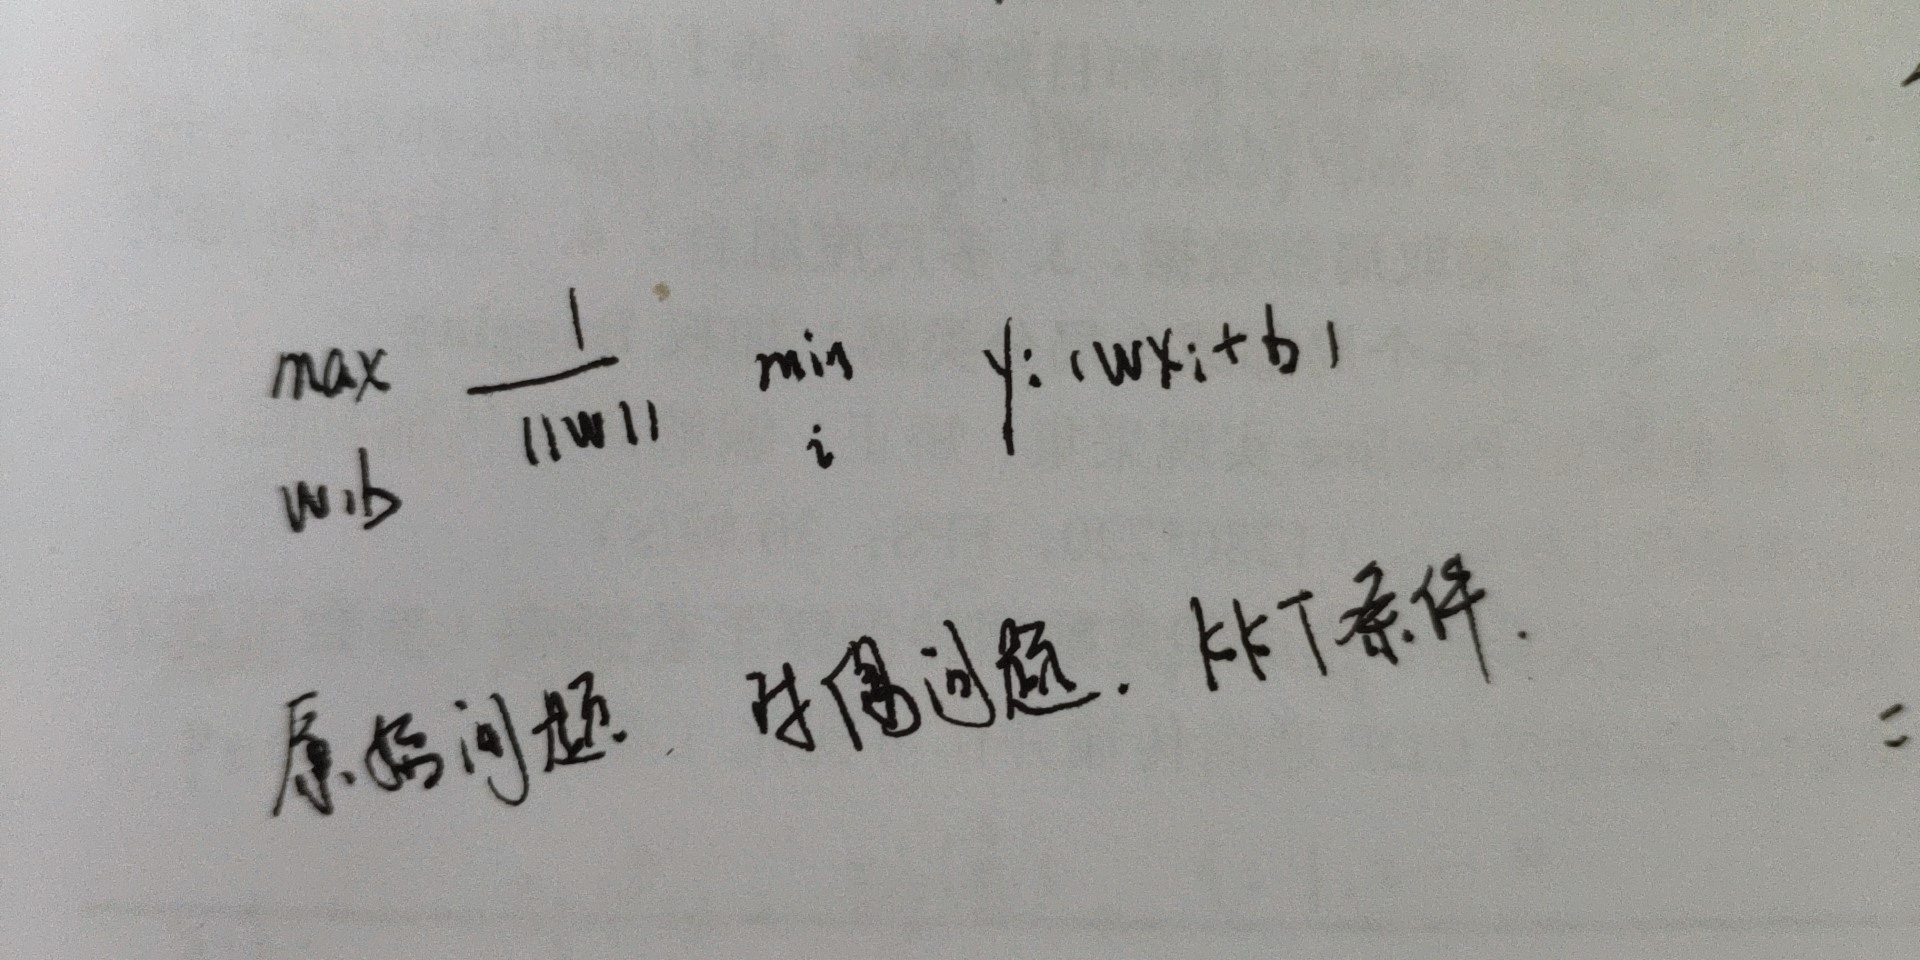 max 1/||w|| min y_i (wx_i + b)
w,b i
原始问题. 对偶问题. KKT条件.
=